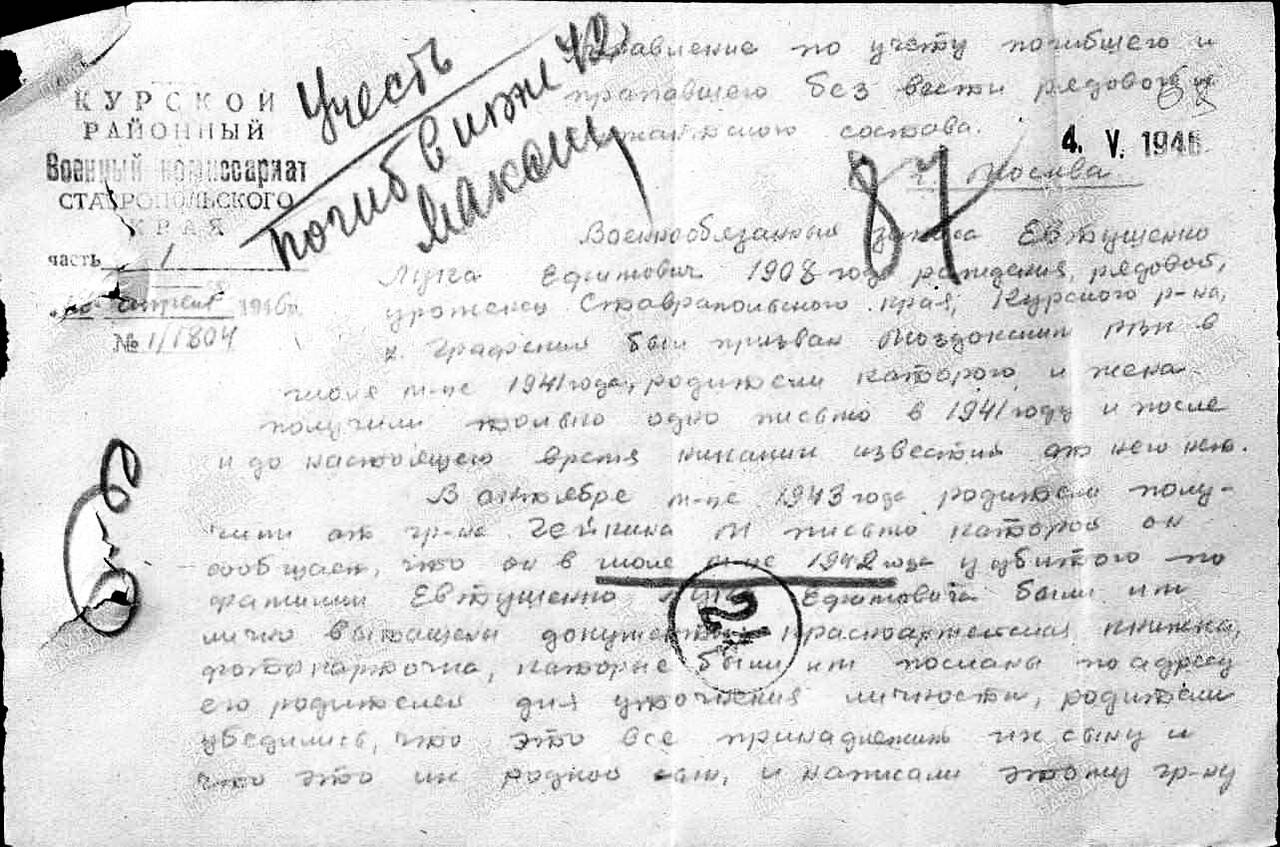 КУРСКОЙ
РАЙОННЫЙ
Военный комиссариат
СТАВРОПОЛЬСКОГО
КРАЯ
часть 1
апреля 1946г.
№ 1/1804
Учесть
погиб в июле 42
87
управление по учету погибшего и
пропавшего без вести рядового и
состава.
4. V. 1946
г. Москва
Военнообязанный запаса Евтушенко
Лука Ефимович 1908 года рождения, рядовой,
уроженец Ставропольского края, Курского р-на,
х. Графский был призван Моздокским РВК в
июле м-це 1941 года, родители которого и жена
получили только одно письмо в 1941 году и после
и до настоящего время никакии известия от него нет.
В октябре м-це 1943 года родители полу-
чили от гр-на М письмо которой он
сообщает, что он в июле м-це 1942 года у убитого по
фамилии Евтушенко Лука Ефимовича были им
лично вытащены документы красноармейская книжка,
фотокарточка, которые были им посланы по адресу
его родителей для уточнения личности, родители
убедились, что это все принадлежит их сыну и
что это их родной сын, и написали этому гр-ну
24